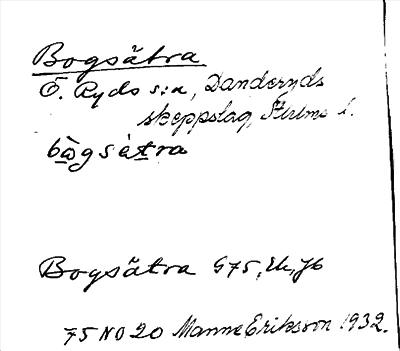 Bogsätra
Ö. Ryds s:n, Danderyds
skeppslag, Sthlms l.
bògsὰtra
Bogsätra G75, Ek, Jb
75 NO 20 Manne Eriksson 1932.